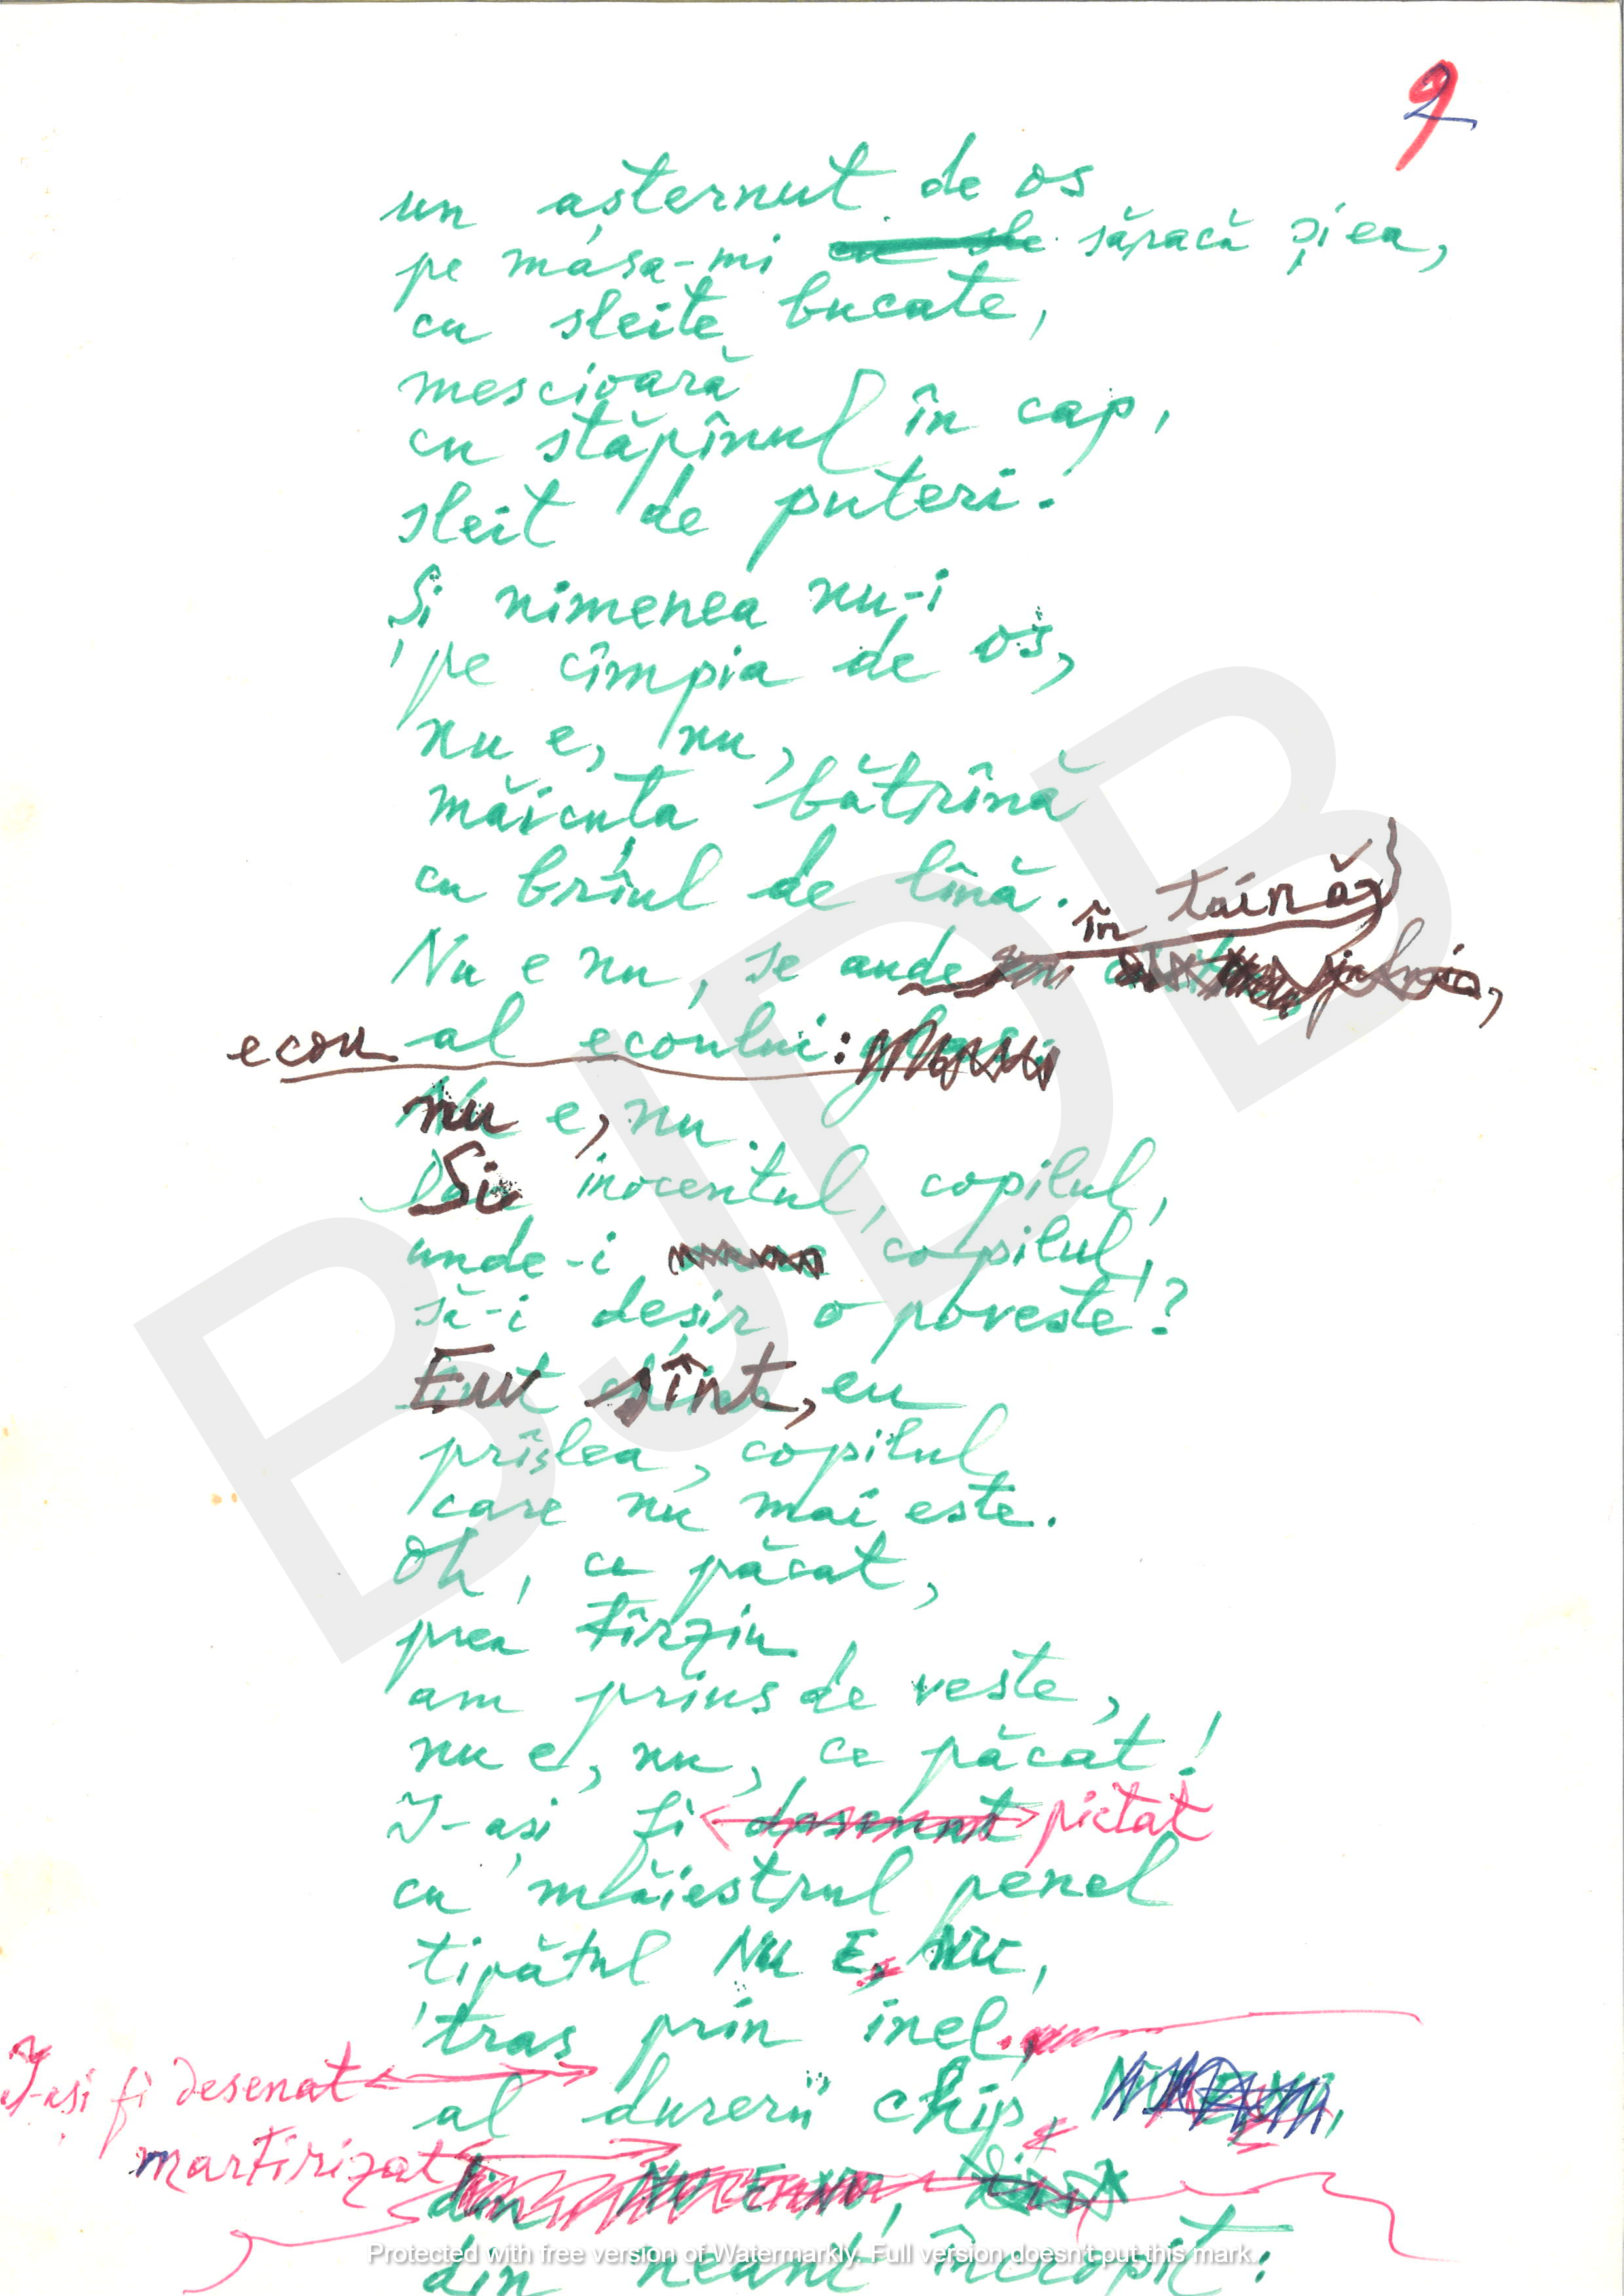 9
2
un așternut de os
pe masa-mi săracă și ea,
cu sleite bucate,
mescioară
cu stăpînul în cap,
sleit de puteri.
Și nimenea nu-i
pe cîmpia de os,
nu e, nu,
măicuța bătrînă
cu brîul de lînă.
în taină
Nu e nu, se aude
ecou al ecoului:
nu e, nu.
Și inocentul, copilul,
unde-i copilul,
să-i deșir o poveste?
Eu sînt, eu
prîslea, copilul
care nu mai este.
Oh, ce păcat,
prea tîrziu
am prins de veste,
nu e, nu, ce păcat!
I-ași fi desenat pictat
cu măiestrul penel
țipătul NU E, NU,
tras prin inel.
I-ași fi desenat
al durerii chip
martirizat
din NU E NU,
din neant încropit:
BJDB
Protected with free version of Watermarkly. Full version doesn't put this mark.